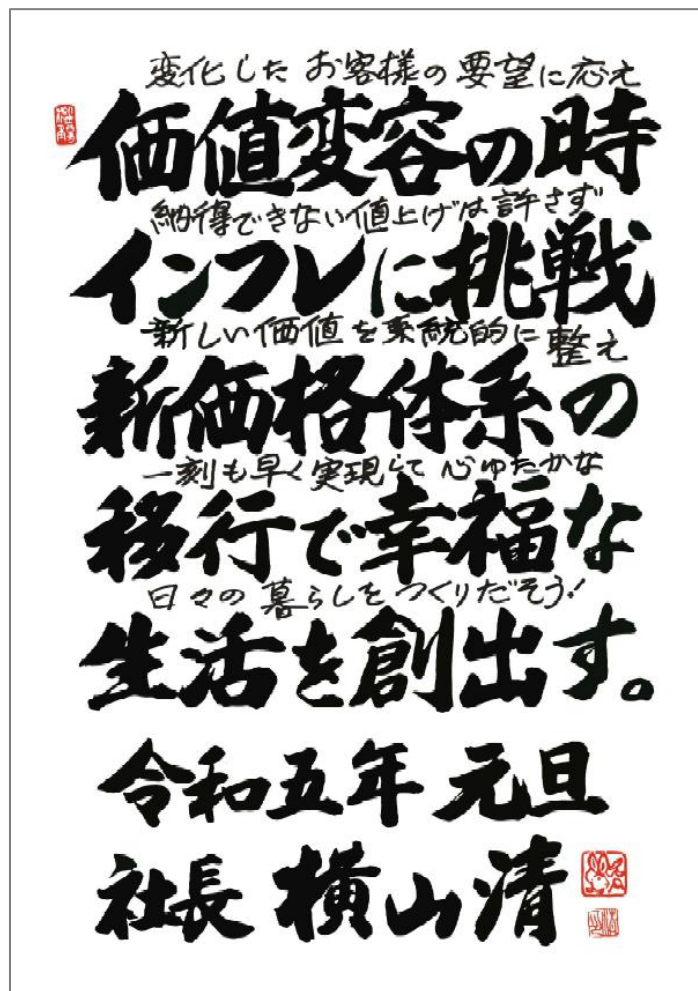 変化した お客様の要望に応え
価値変容の時
納得できない値上げは許さず
インフレに挑戦
新しい価値を系統的に整え
新価格体系の
一刻も早く実現して 心ゆたかな
移行で幸福な
日々の暮らしをつくりだそう!
生活を創出す。
令和五年 元旦
社長 横山清